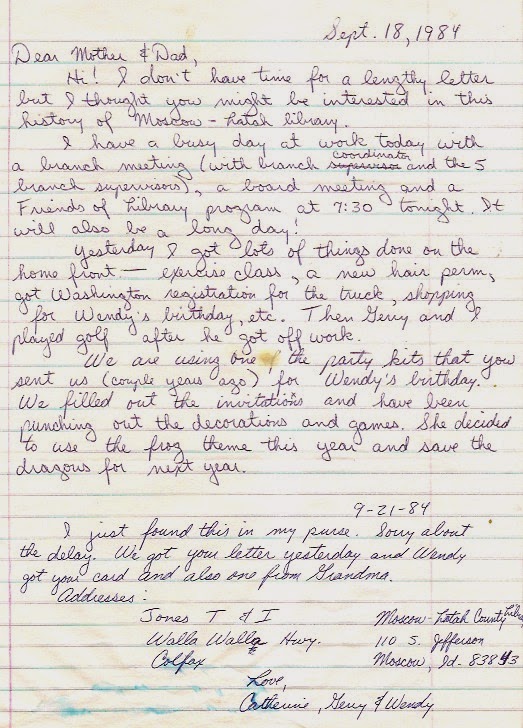 Sept. 18, 1984
Dear Mother & Dad,
Hi! I don't have time for a lengthy letter
but I thought you might be interested in this
history of Moscow-Latah library.
I have a busy day at work today with
a branch meeting (with branch supervisor coordinator and the 5
branch supervisors), a board meeting and a
Friends of Library program at 7:30 tonight. It
will also be a long day!
Yesterday I got lots of things done on the
home front — exercise class, a new hair perm,
got Washington registration for the truck, shopping
for Wendy's birthday, etc. Then Gerry and I
played golf after he got off work.
We are using one of the party kits that you
sent us (couple years ago) for Wendy's birthday.
We filled out the invitations and have been
punching out the decorations and games. She decided
to use the frog theme this year and save the
dragons for next year.
9-21-84
I just found this in my purse. Sorry about
the delay. We got your letter yesterday and Wendy
got your card and also one from Grandma.
Addresses:
Jones T & I
Walla Walla Hwy.
Colfax
Moscow-Latah County Library
110 S. Jefferson
Moscow, Id. 83843
Love,
Catherine, Gerry & Wendy